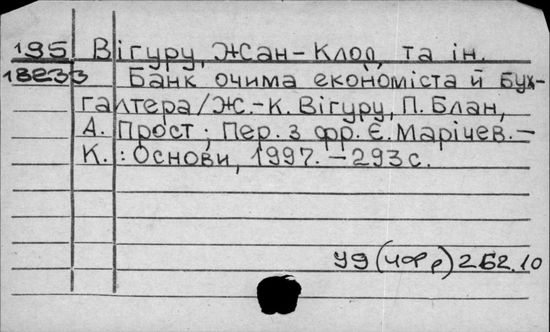 195 Вігуру, Жан-Клод, та ін.
18233 Банк очима економіста й бух-
галтера/Ж.-К. Вігуру, П. Блан,
А. Прост; Пер. з фр. Є. Марічев.-
К.: Основи, 1997. - 293 с.
У9(4Фр)262.10